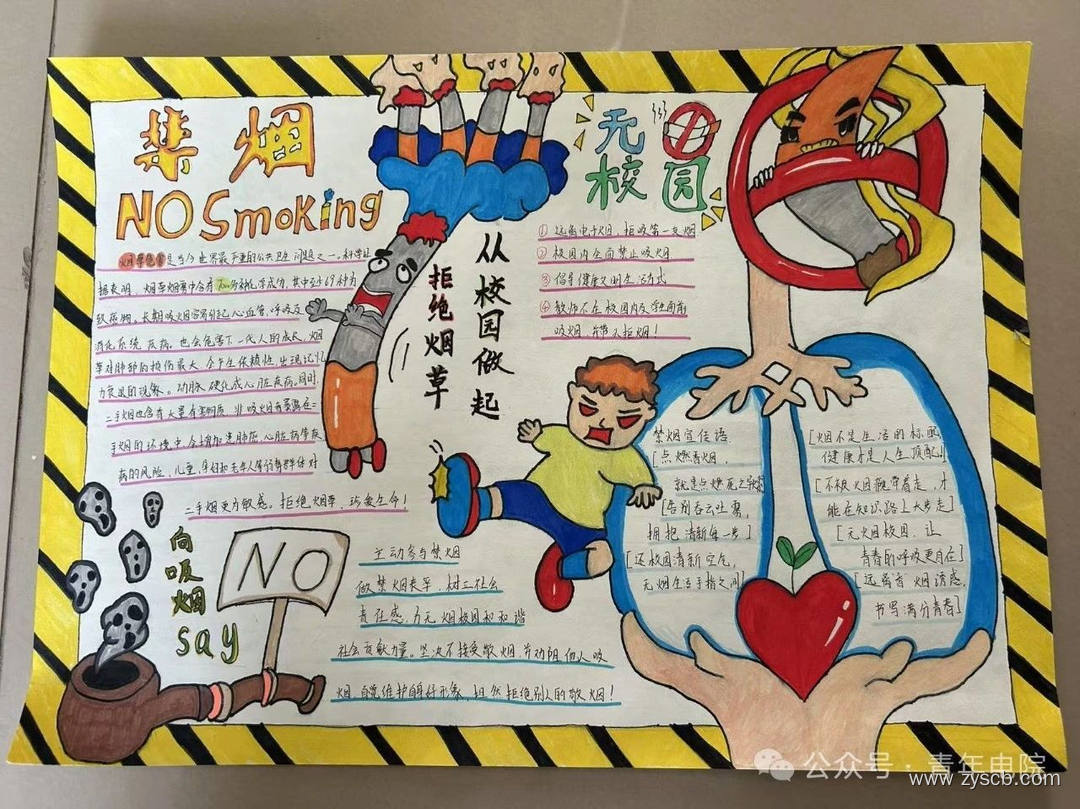 禁烟
NO Smoking
烟草危害是当今世界最严重的公共卫生问题之一。科学证
据表明，烟草烟雾中含有7000多种化学成分，其中至少69种为
致癌物。长期吸烟容易引起心血管、呼吸及
消化系统疾病，也会危害下一代人的成长。烟
草对肺部的损伤最大，会产生依赖性，出现记忆
力衰退的现象。动脉硬化成心脏疾病。同时，
二手烟也含有大量有害物质，非吸烟者暴露在
手烟的环境中，会增加患肺癌、心脏病等疾
病的风险，儿童、孕妇和老年人等弱势群体对
二手烟更为敏感。拒绝烟草，珍爱生命！
从校园做起
拒绝烟草
无
校园
①远离电子烟，拒吸第一支烟
②校园内全面禁止吸烟
③倡导健康文明生活方式
④教师不在校园内及学生面前
吸烟
向
吸
烟
say
NO
主动参与禁烟
做禁烟表率，树立社会
责任感，为无烟校园和和谐
社会贡献力量。坚决不接受敬烟，并劝阻他人吸
烟，自觉维护自身好形象，坦然拒绝别人的敬烟！
禁烟宣传语
[点燃香烟，
就是点燃死之
[告别吞云吐雾，
拥抱清新每一步]
[还校园清新空气，
无烟生活手指之间]
[烟不是生活的标配，
健康才是人生顶配]
[不被烟瘾牵着走，才
能在知识路上大步走]
[无烟校园，让
青春的呼吸更自在]
[远离香烟诱惑，
书写满分青春]
公众号·青年电院
www.zyscb.com